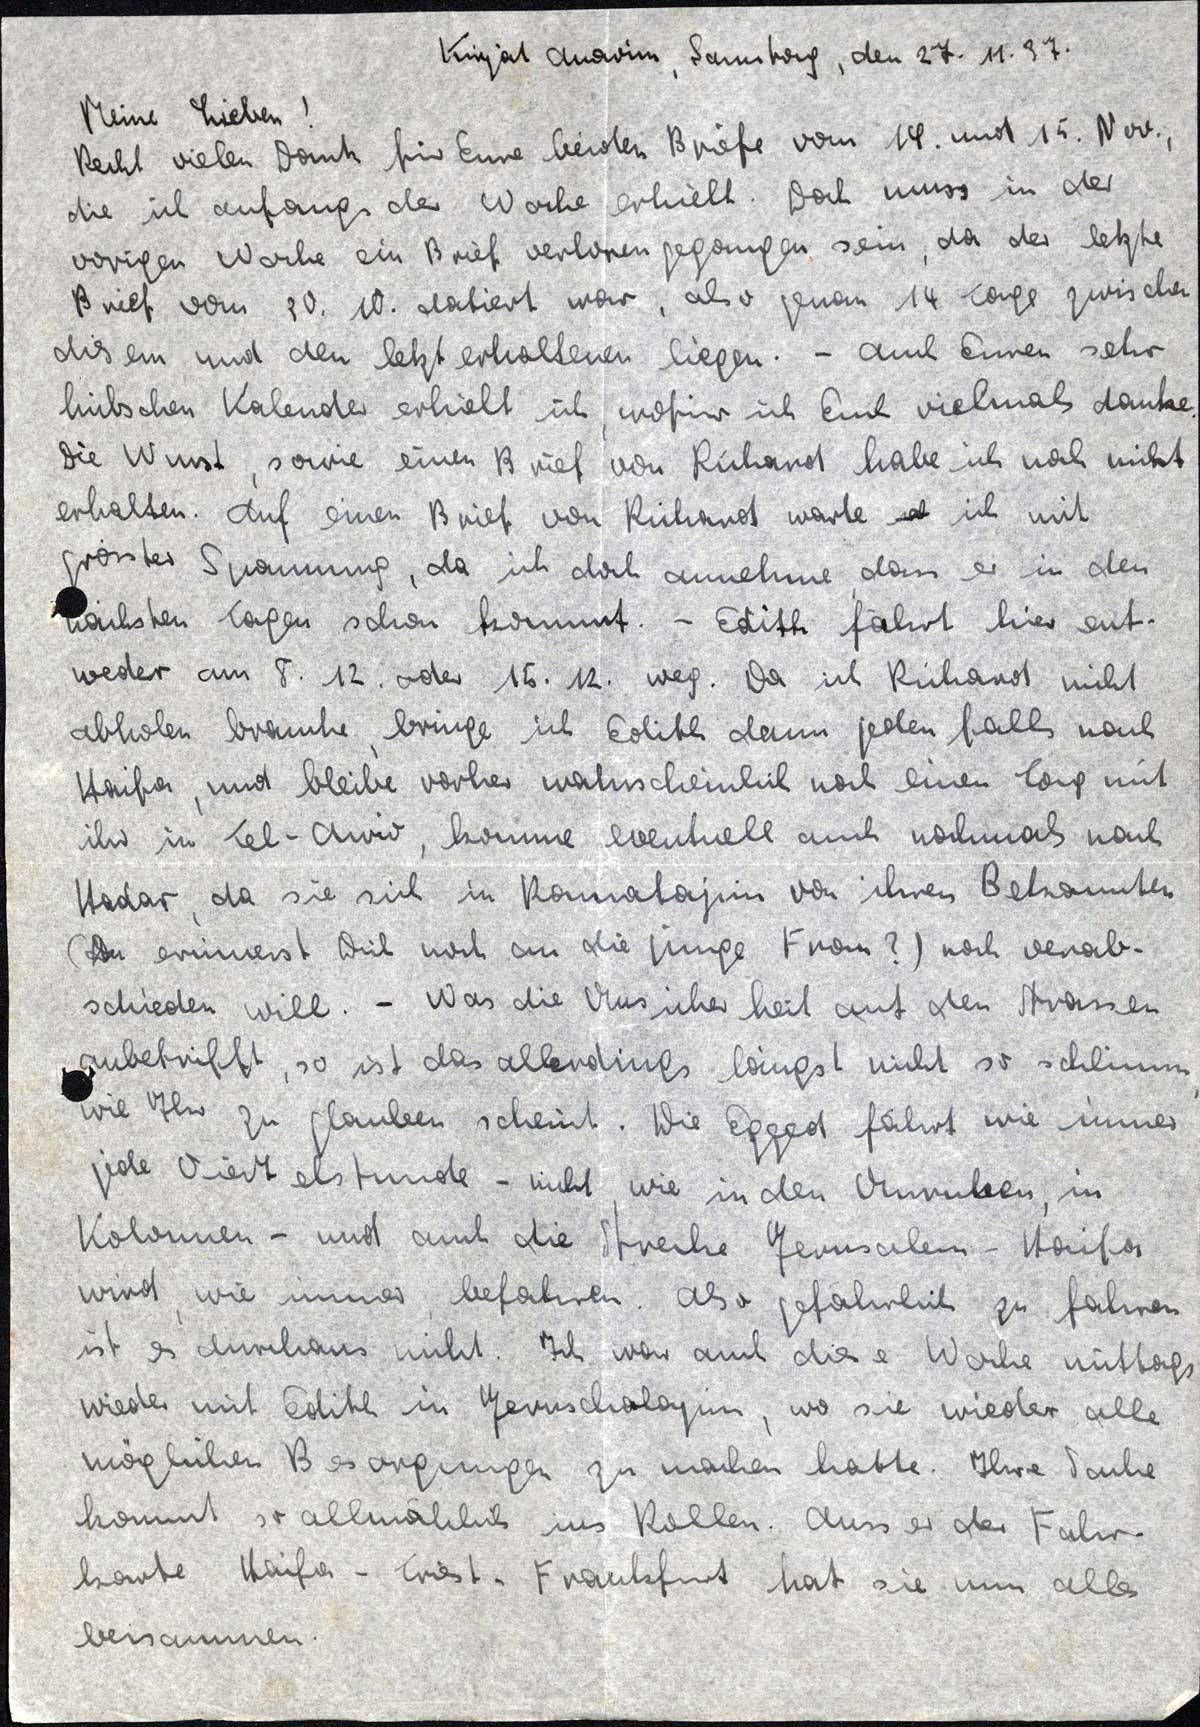 Kirjat Anavim, Samstag, den 27. 11. 37.
Meine Lieben!
Recht vielen Dank für Eure beiden Briefe vom 14. und 15. Nov.,
die ich anfangs der Woche erhielt. Doch muss in der
vorigen Woche ein Brief verloren gegangen sein, da der letzte
Brief vom 30. 10. datiert war, also genau 14 Tage zwischen
diesem und den letzt erhaltenen liegen. - Auch Euren sehr
hübschen Kalender erhielt ich, wofür ich Euch vielmals danke.
Die Wurst, sowie einen Brief von Richard habe ich noch nicht
erhalten. Auf einen Brief von Richard warte ich mit
grösster Spannung, da ich doch annehme, dass er in den
nächsten Tagen schon kommt. - Edith fährt hier ent-
weder am 8. 12. oder 15. 12. weg. Da ich Richard nicht
abholen brauche, bringe ich Edith dann jedenfalls nach
Haifa, und bleibe vorher wahrscheinlich noch einen Tag mit
ihr in Tel-Awiv, komme eventuell auch nochmals nach
Hadar, da sie sich in Ramatajim von ihren Bekannten
(Du erinnerst Dich noch an die junge Frau?) noch verab-
schieden will. - Was die Unsicherheit auf den Strassen
anbetrifft, so ist das allerdings längst nicht so schlimm,
wie Ihr zu glauben scheint. Die Egged fährt wie immer
jede Viertelstunde - nicht, wie in den Unruhen, in
Kolonnen - und auch die Strecke Jerusalem - Haifa
wird, wie immer, befahren. Also gefährlich zu fahren
ist es durchaus nicht. Ich war auch diese Woche mittags
wieder mit Edith in Jeruschalajim, wo sie wieder alle
möglichen Besorgungen zu machen hatte. Ihre Sache
kommt so allmählich ins Rollen. Ausser der Fahr-
karte Haifa - Triest - Frankfurt hat sie nun alles
beisammen.